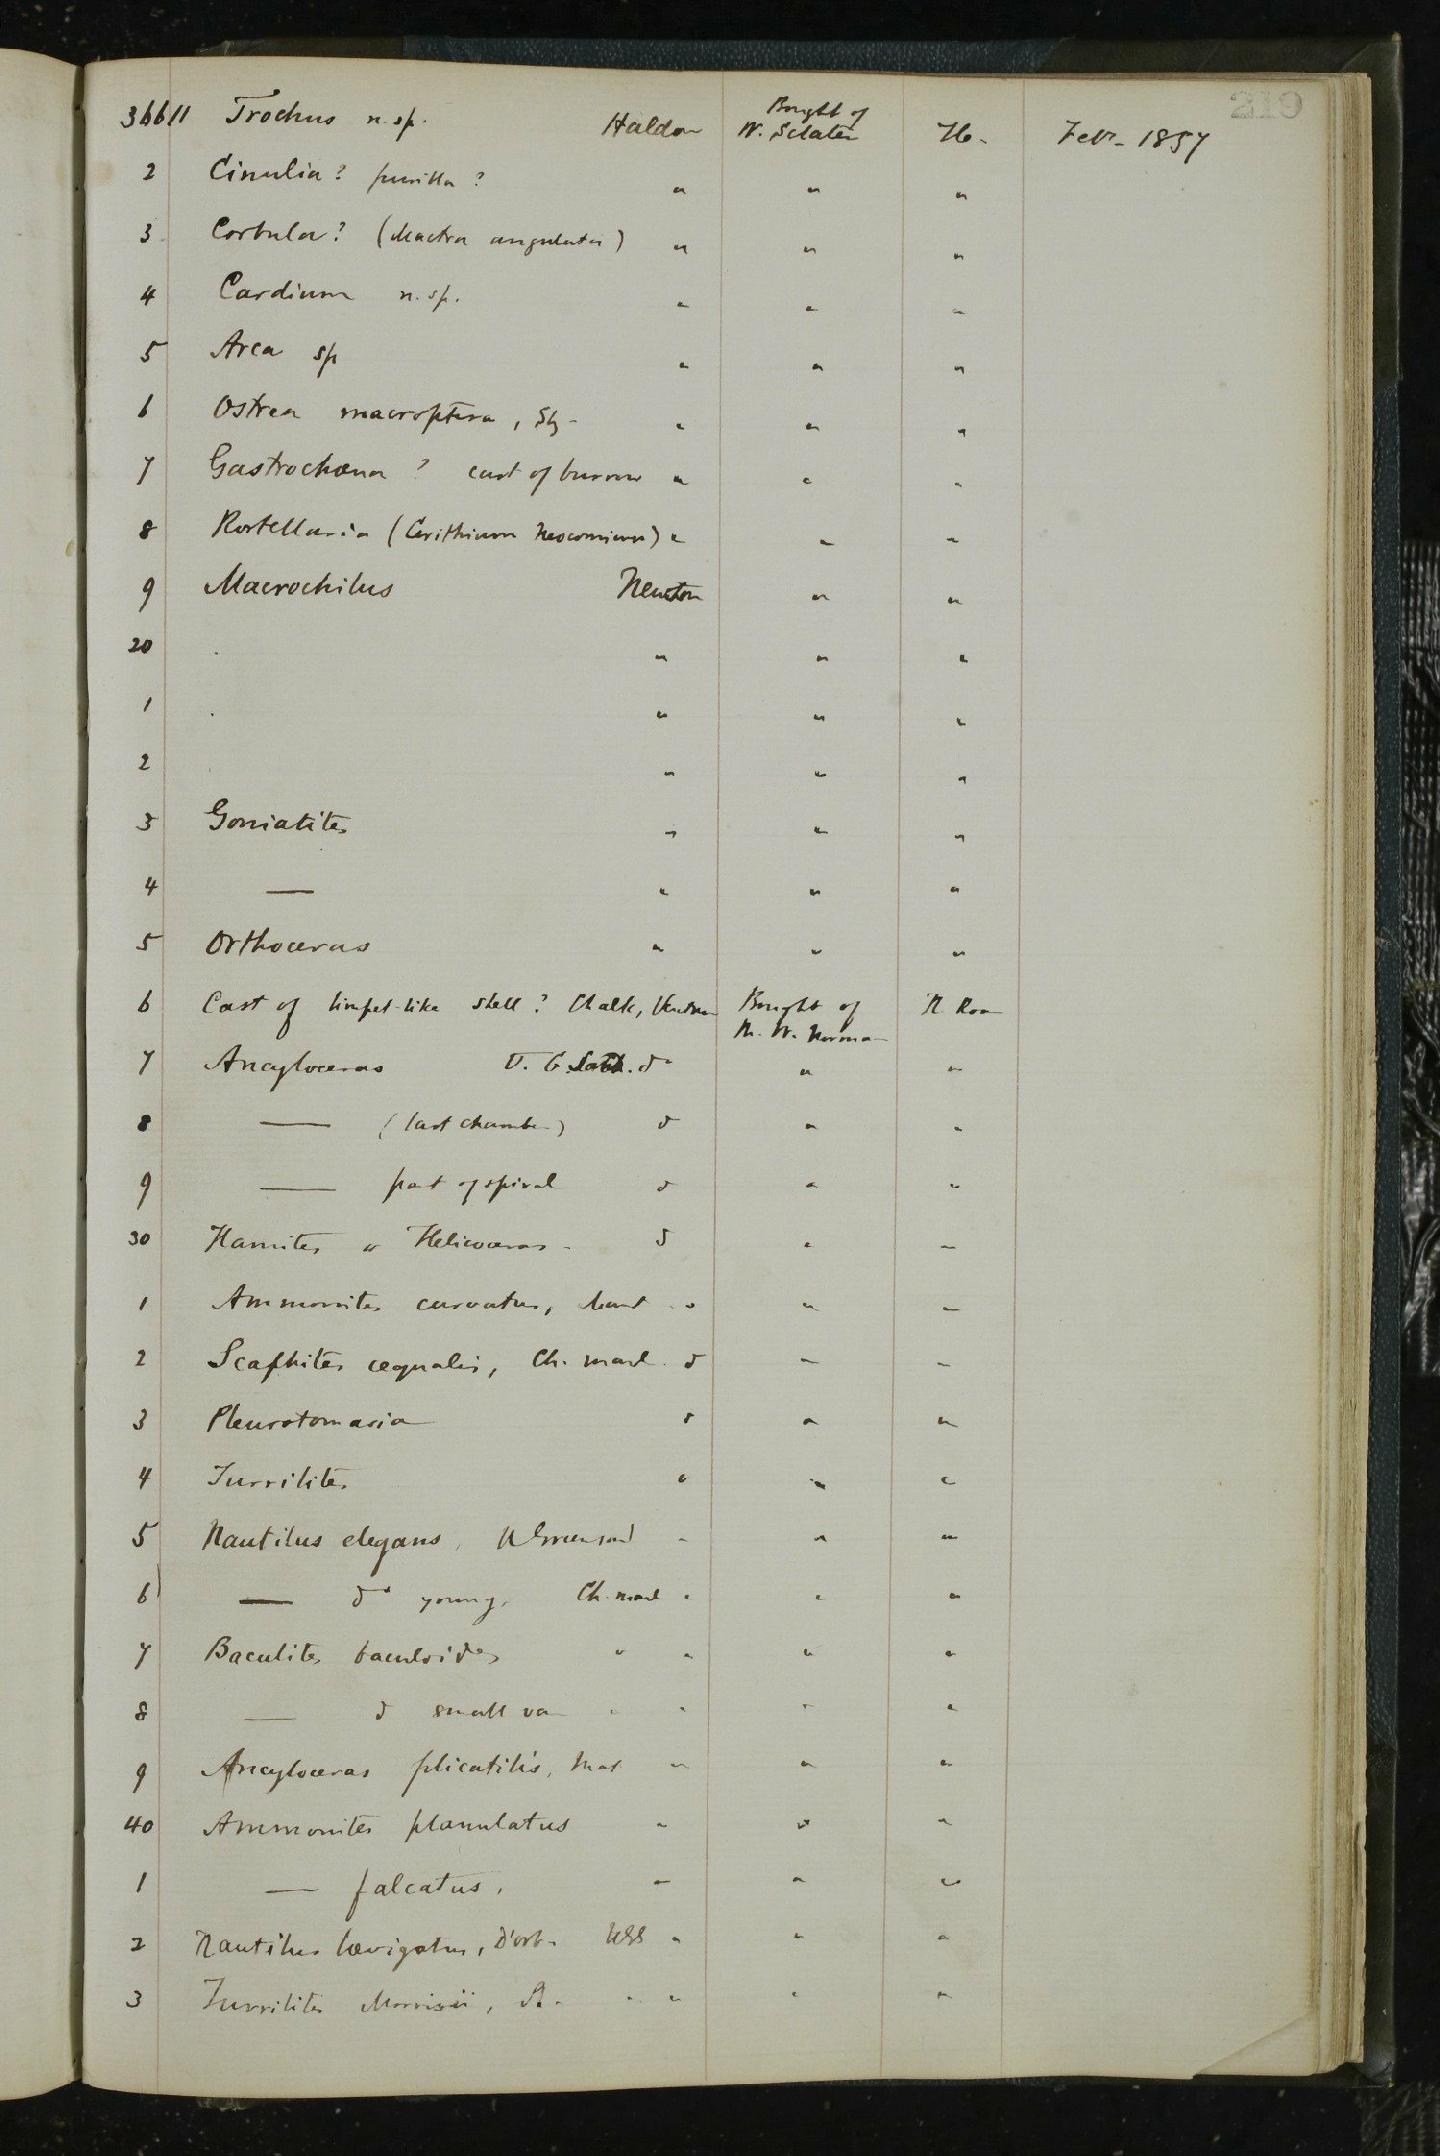 219
36611 Trochus n. sp. Haldon Bought of W. Sclater Feb. 1857
2 Cinulia? pusilla? " " "
3 Corbula? (Mactra angulata) " " "
4 Cardium n. sp. " " "
5 Arca sp " " "
6 Ostrea macroptera, Sby- " " "
7 Gastrochæna? cast of burrow " " "
8 Rostellaria (Cerithium Neocomiense) " " "
9 Macrochilus Newton " "
20 " " "
1 " " "
2 " " "
3 Goniatites " " "
4 — " " "
5 Orthoceras " " "
6 Cast of limpet-like shell? Chalk, Ventnor Bought of M. W. Norman
7 Ancyloceras U. G. Sand. do " "
8 — (last chamber) do " "
9 — part of spiral do " "
30 Hamites or Helicoceras - do " "
1 Ammonites curvatus, Mant " " "
2 Scaphites æqualis, Ch. marl do " "
3 Pleurotomaria do " "
4 Turrilites " " "
5 Nautilus elegans, U Greensand " " "
6 — do young. Ch. marl " " "
7 Baculites baculoides " " " "
8 — do small var " " " "
9 Ancyloceras plicatilis, " " "
40 Ammonites planulatus " " "
1 — falcatus, " " "
2 Nautilus lævigatus, D'orb. UGS " " "
3 Turrilites Morrisii, " " " "